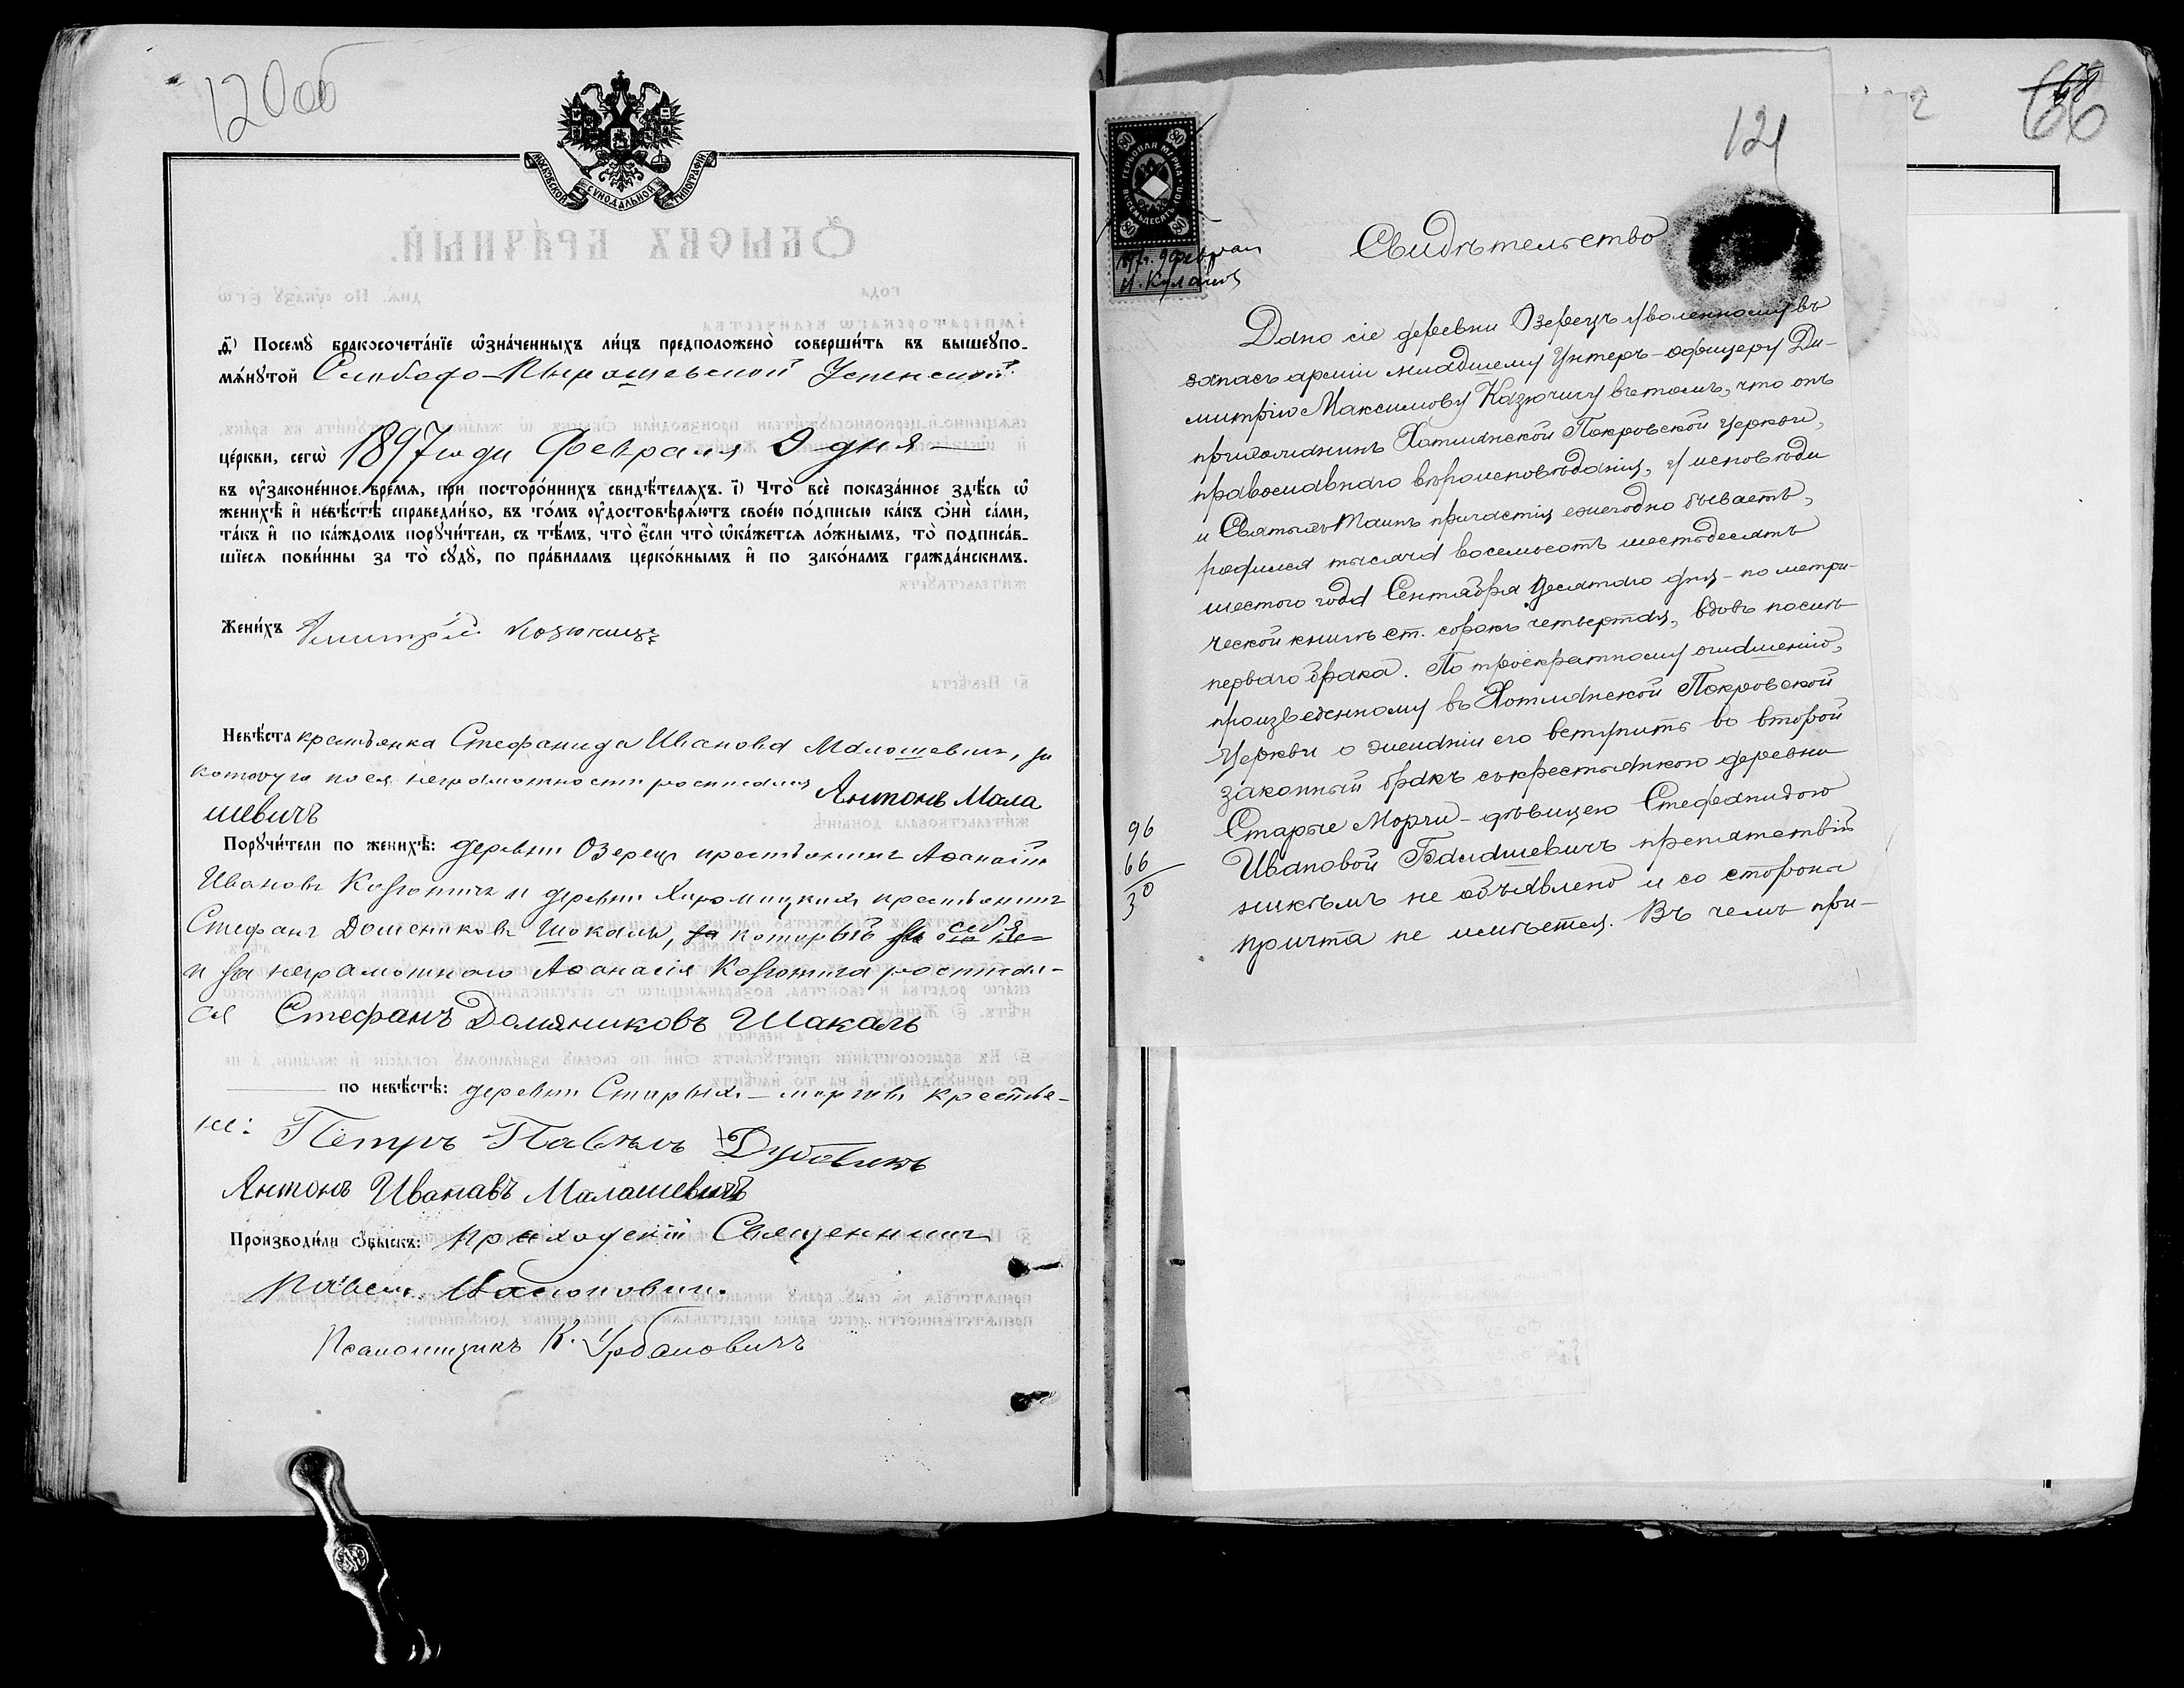 120об
МОСКОВСКОЙ СУНОДАЛЬНОЙ ТИПОГРАФІИ
ѳ҃) Посемꙋ̀ бракосочета́нїе ѡ҆зна́ченныхъ ли́цъ предположено̀ соверши́ть въ вышеꙋпо-
мѧ́нꙋтой Слободо-Пырашевской Успенской
це́ркви, сегѡ̀ 1897 года Февраля 9 дня
въ ᲂу҆зако́ненное вре́мѧ, при посторо́ннихъ свидѣ́телѧхъ. і҃) Что̀ всѐ показа́нное здѣ́сь ѡ҆
женихѣ̀ и҆ невѣ́стѣ справедли́во, въ то́мъ ᲂу҆достовѣрѧ́ютъ свое́ю по́дписью ка́къ ѻ҆нѝ са́ми,
та́къ и҆ по ка́ждомъ порꙋчи́тели, съ тѣ́мъ, что̀ є҆́сли что̀ ѡ҆ка́жетсѧ ло́жнымъ, то̀ подписа́в-
шїесѧ пови́нны за то̀ сꙋдꙋ̀, по пра́виламъ церко́внымъ и҆ по зако́намъ гражда́нскимъ.
Жени́хъ Дмитрій Козючицъ
Невѣ́ста крестьянка Стефанида Иванова Малошевичъ, за
которую по ея неграмотности росписался Антонъ Мала
шевичъ
Порꙋчи́тели по женихѣ̀: деревни Озерецъ крестьянинъ Аѳанасій
Ивановъ Козючичъ и деревни крестьянинъ
Стефанъ Доменниковъ Шокаль, который за себя
и за неграмотного Аѳанасія Козючича росписал-
ся Стефанъ Домяниковъ Шакаль
по невѣ́стѣ: деревни Старыхъ-Морговъ крестья-
не: Петръ Павелъ Дубовикъ
Антонъ Иванавъ Малашевичъ
Производи́ли ѻ҆́быскъ: Приходскій Священникъ
Павелъ
Псаломщикъ К. Урбановичъ
121
66
ГЕРБОВАЯ МАРКА
ВОСЕМЬДЕСЯТЪ КОП.
80 80
80 80
1897г. 9 Февраля
Свидѣтельство
Дано сіе деревни Озерецъ уволенному въ
запасъ арміи младшему Унтеръ-офицеру Ди-
митрію Максимову Казючичу въ томъ, что онъ
прихожанинъ Хотлянской Покровской церкви,
православнаго вѣроисповѣданія, у исповѣди
и Святыхъ Таинъ причастія ежегодно бываетъ,
родился тысяча восемьсотъ шестьдесятъ
шестого года Сентября десятаго дня - по метри-
ческой книгѣ ст. сорокъ четвертая, вдовъ послѣ
перваго брака. По троекратному оглашенію,
произведенному въ Хотлянской Покровской
Церкви о желаніи его вступить во второй
законный бракъ съ крестьянкою деревни
Старые Морги - дѣвицею Стефанидою
Ивановой Балашевичъ препятствій
никѣмъ не объявлено и со стороны
причта не имѣется. Въ чемъ при-
96
66
30